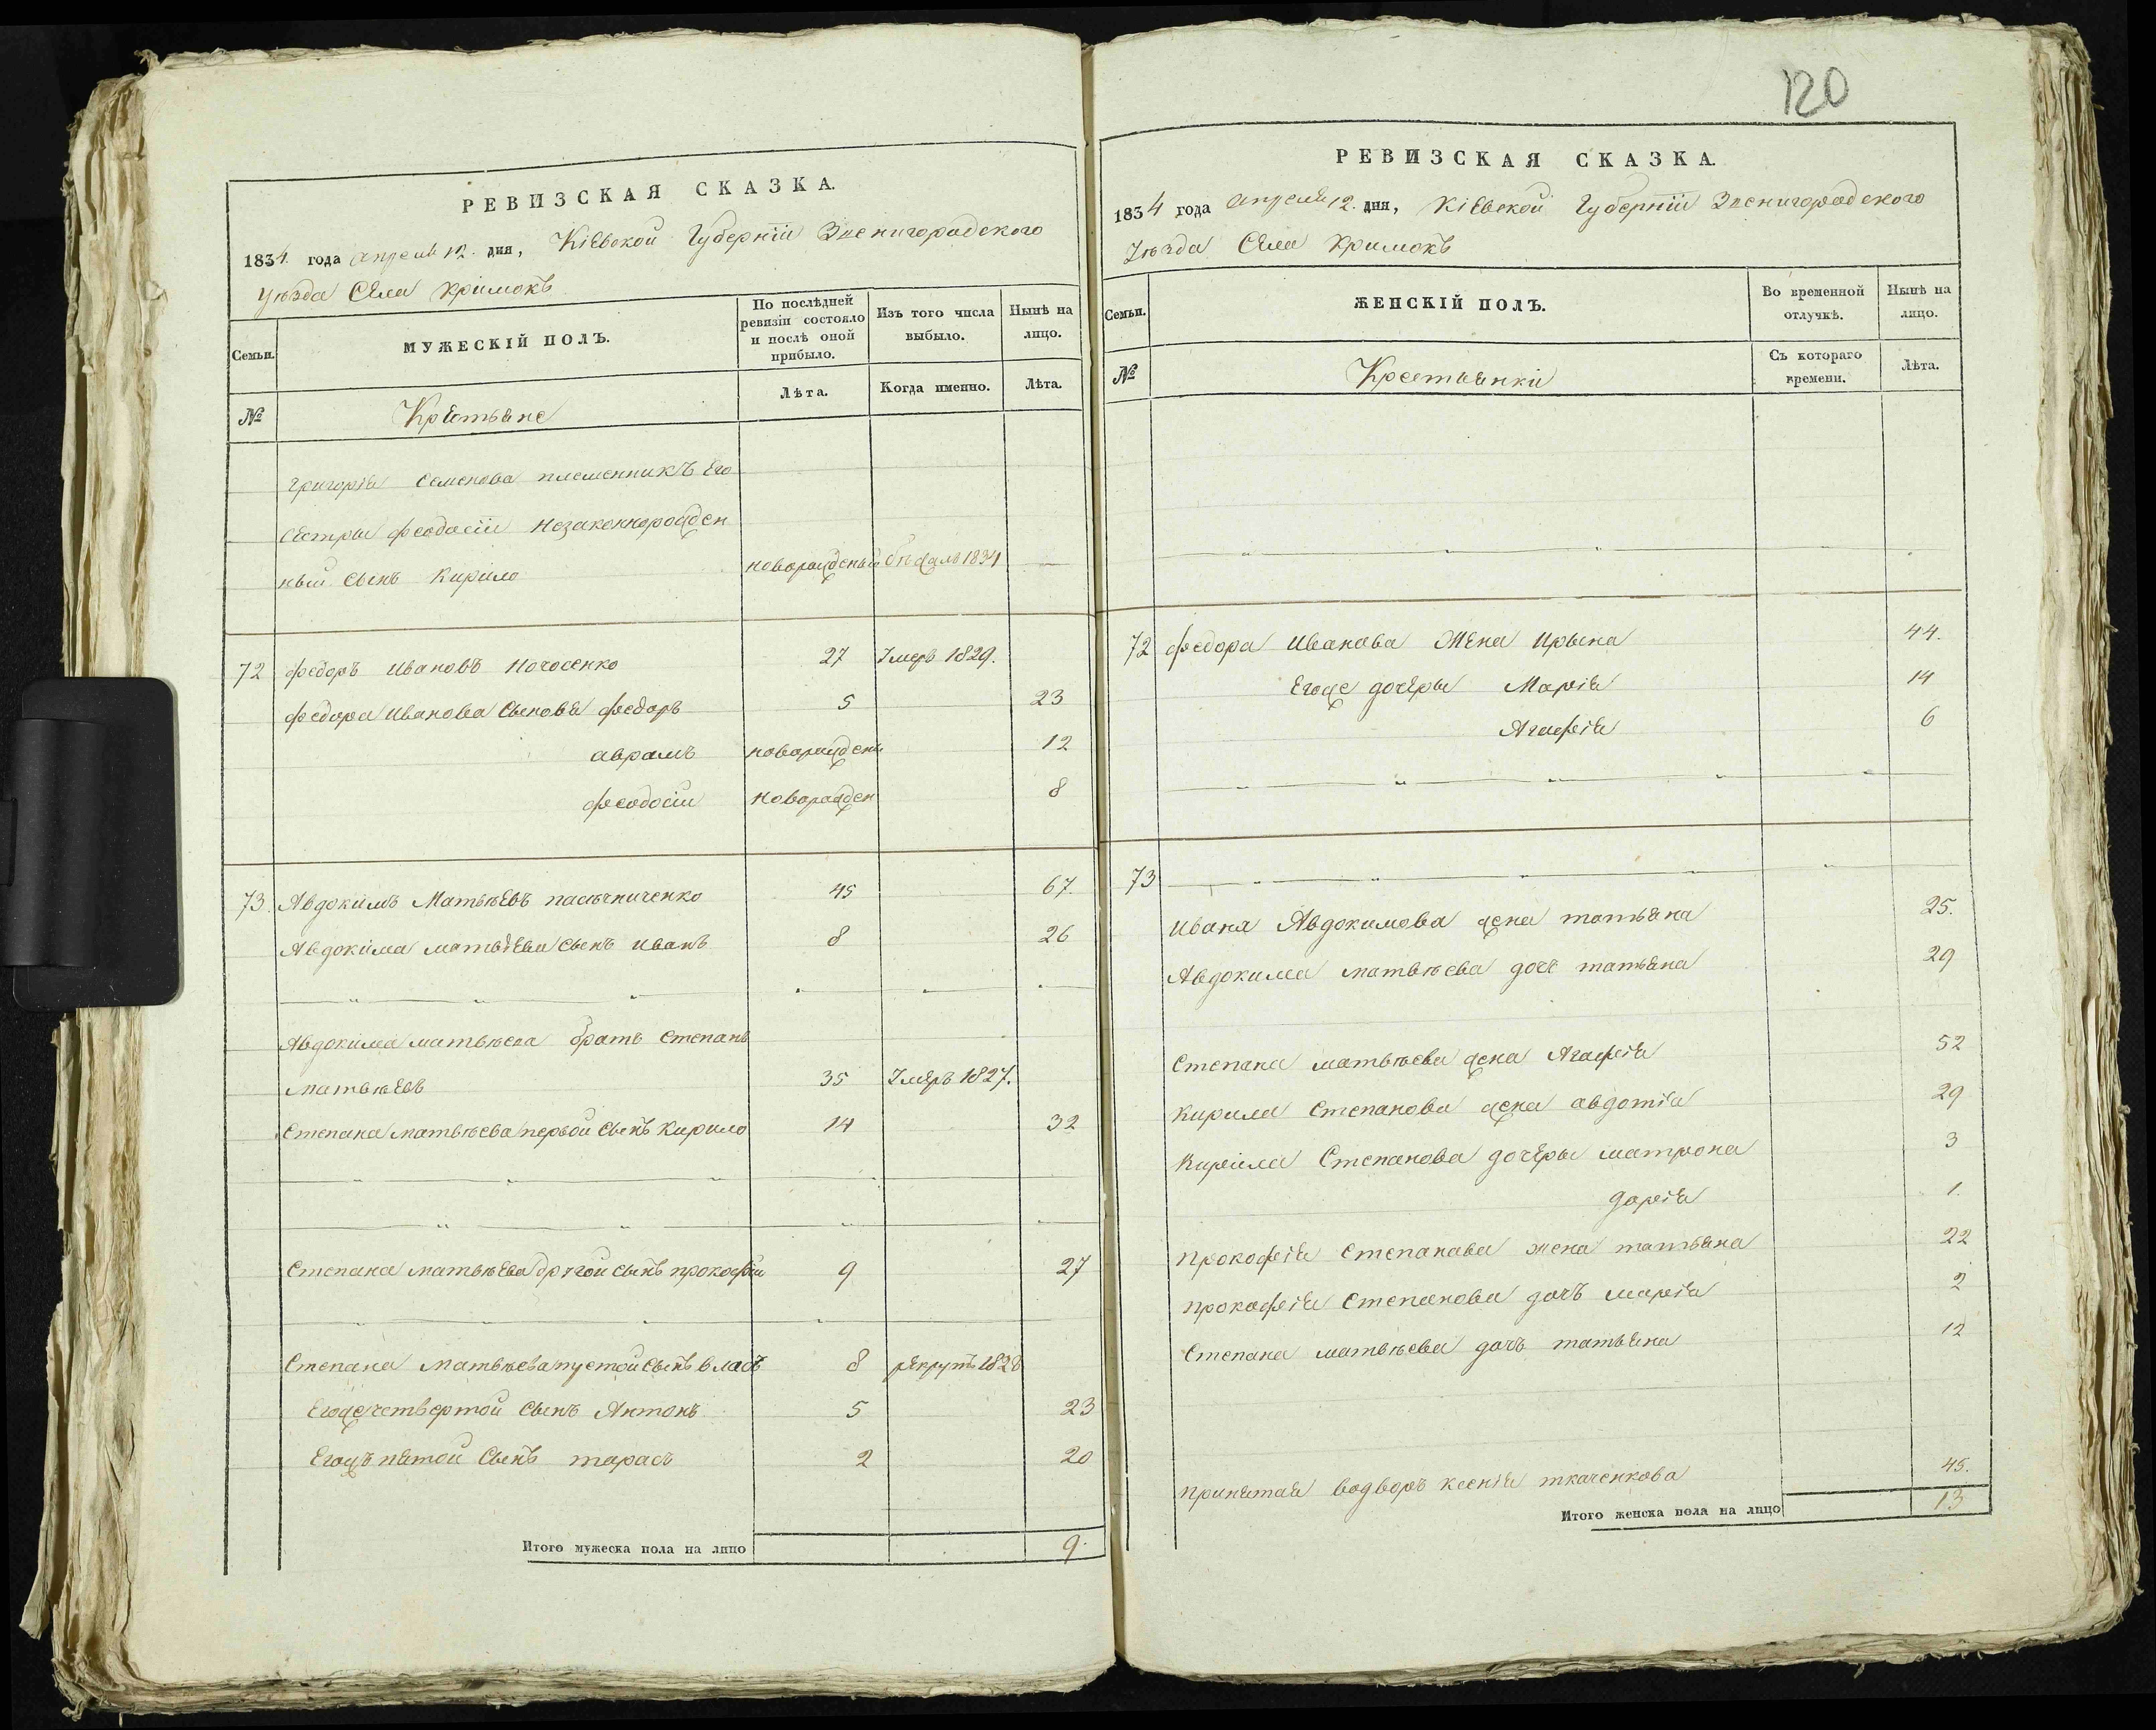 РЕВИЗСКАЯ СКАЗКА.
1834. года апреля 12. дня, Кіевской Губерніи Звенигородского
Уѣзда Села Кримокъ
Семьи.
МУЖЕСКІЙ ПОЛЪ.
По послѣдней ревизіи состояло и послѣ оной прибыло.
Изъ того числа выбыло.
Нынѣ на лицо.
№
Крестьяне
Лѣта.
Когда именно.
Лѣта.
Григорія Семенова племенникъ Его
сестры феодосіи незаконнорожден
ный сынъ Кирило новорожденый бѣжалъ 1834
72 федоръ Ивановъ Носенко 27 Умеръ 1829.
федора Иванова сыновя федоръ 5 23
аврамъ новорожденъ 12
феодосіи новорожден 8
73. Авдокимъ Матвѣевъ пасѣчниченко 45 67.
Авдокима матвѣева сынъ иванъ 8 26
Авдокима матвѣева братъ степанъ
матвѣевъ 35 Умеръ 1827.
Степана матвѣева первой сынъ Кирило 14 32
Степана матвѣева другой сынъ прокофій 9 27
Степана матвѣева третой сынъ власъ 8 рекрутъ 1828
Егоже четвертой сынъ Антонъ 5 23
Егожъ пятой сынъ тарасъ 2 20
Итого мужеска пола на лицо 9.
120
РЕВИЗСКАЯ СКАЗКА.
1834 года апреля 12. дня, Кіевской Губерніи Звенигородского
Уѣзда Села Кримокъ
Семьи.
ЖЕНСКІЙ ПОЛЪ.
Во временной отлучкѣ.
Нынѣ на лицо.
№
Крестьянки
Съ котораго времени.
Лѣта.
72 федора Иванова Жена Ирына 44.
Егоже дочеры Марія 14
Агафія 6
73
Ивана Авдокимова жена татьяна 25.
Авдокима матвѣева дочь татьяна 29
Степана матвѣева жена Агафія 52
Кирила Степанова жена авдотія 29
Кирила Степанова дочеры матрона 3
дарія 1.
прокофія степанова жена татьяна 22
прокофія степанова дочъ марія 2
Степана матвѣева дочъ татьяна 12
принятая водворъ ксенія ткаченкова 45.
Итого женска пола на лицо 13